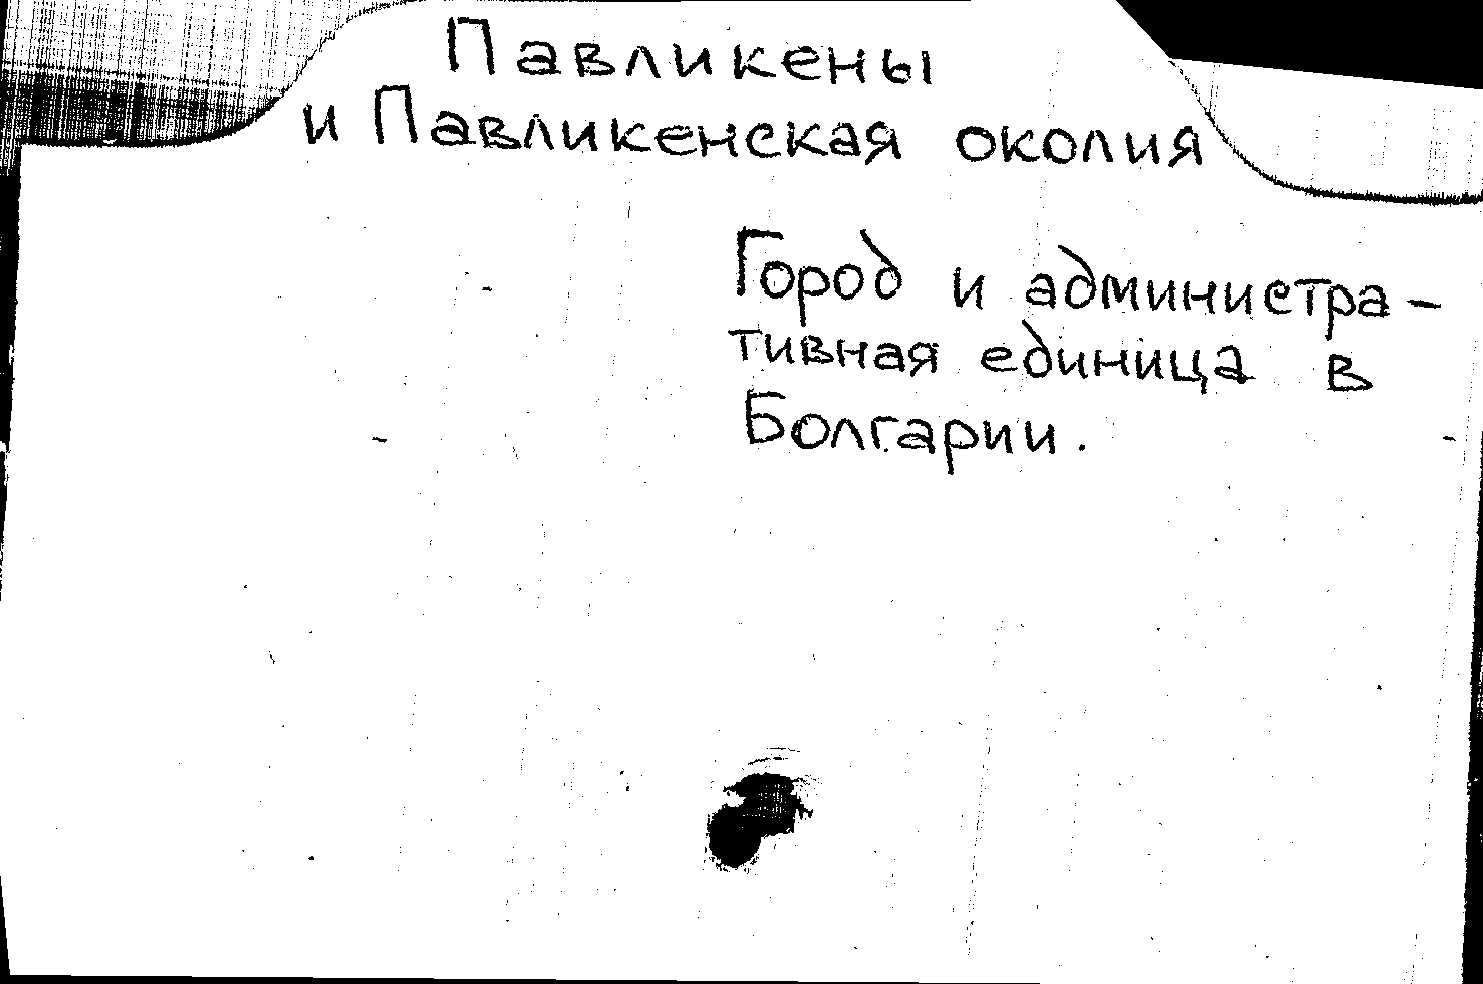 Павликены
и Павликенская околия
Город и администра-
тивная единица в
Болгарии.